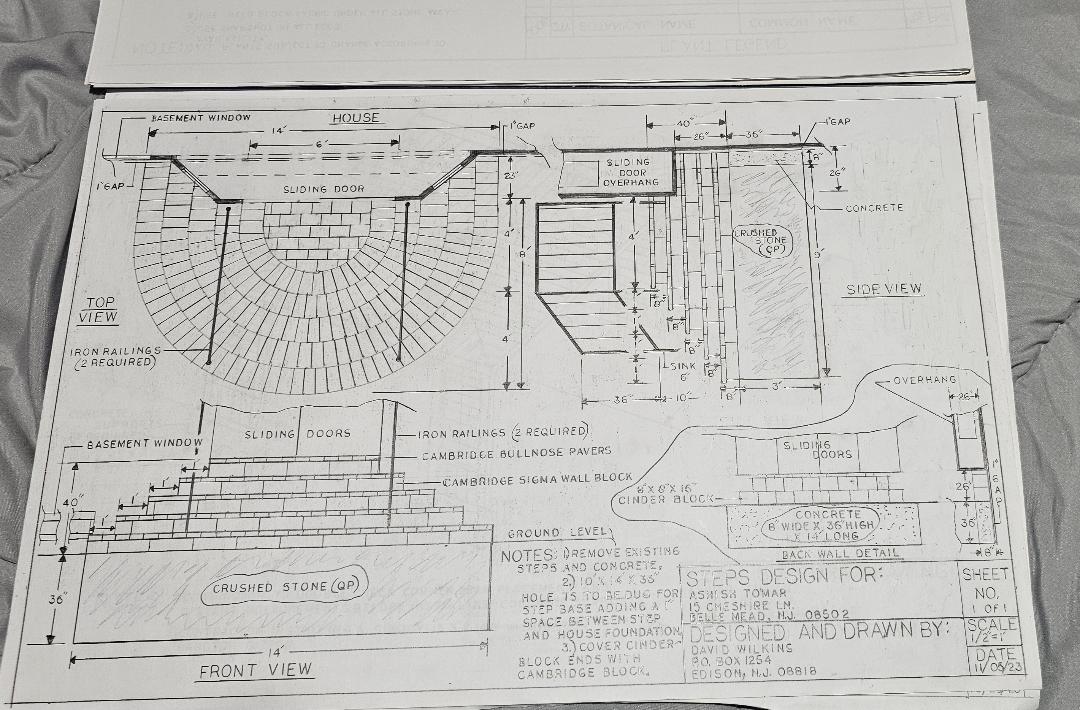 PLANT LEGEND
BOTANICAL NAME
COMMON NAME
BASEMENT WINDOW
HOUSE
14'
6'
1" GAP
1" GAP
SLIDING DOOR
23"
4'
8'
4'
TOP
VIEW
IRON RAILINGS
(2 REQUIRED)
40"
26"
36"
1" GAP
8"
26"
SLIDING
DOOR
OVERHANG
CONCRETE
4'
CRUSHED
STONE
(QP)
9'
SIDE VIEW
8"
8"
8"
8"
SINK
6"
36"
10"
8"
3'
BASEMENT WINDOW
SLIDING DOORS
IRON RAILINGS (2 REQUIRED)
CAMBRIDGE BULLNOSE PAVERS
CAMBRIDGE SIGMA WALL BLOCK
1'
1'
1'
1'
40"
GROUND LEVEL
CRUSHED STONE (QP)
36"
14'
FRONT VIEW
OVERHANG
26"
SLIDING
DOORS
8"X 8"X 16"
CINDER BLOCK
CONCRETE
8" WIDE X 36" HIGH
X 14' LONG
BACK WALL DETAIL
26"
36"
8"
1" GAP
NOTES: 1.) REMOVE EXISTING
STEPS AND CONCRETE.
2.) 10' X 14' X 36"
HOLE IS TO BE DUG FOR
STEP BASE ADDING A 1"
SPACE BETWEEN STEP
AND HOUSE FOUNDATION.
3.) COVER CINDER
BLOCK ENDS WITH
CAMBRIDGE BLOCK.
STEPS DESIGN FOR:
ASHISH TOMAR
15 CHESHIRE LN.
BELLE MEAD, N.J. 08502
DESIGNED AND DRAWN BY:
DAVID WILKINS
P.O. BOX 1254
EDISON, N.J. 08818
SHEET
NO.
1 OF 1
SCALE
1/2"=1'
DATE
11/05/23